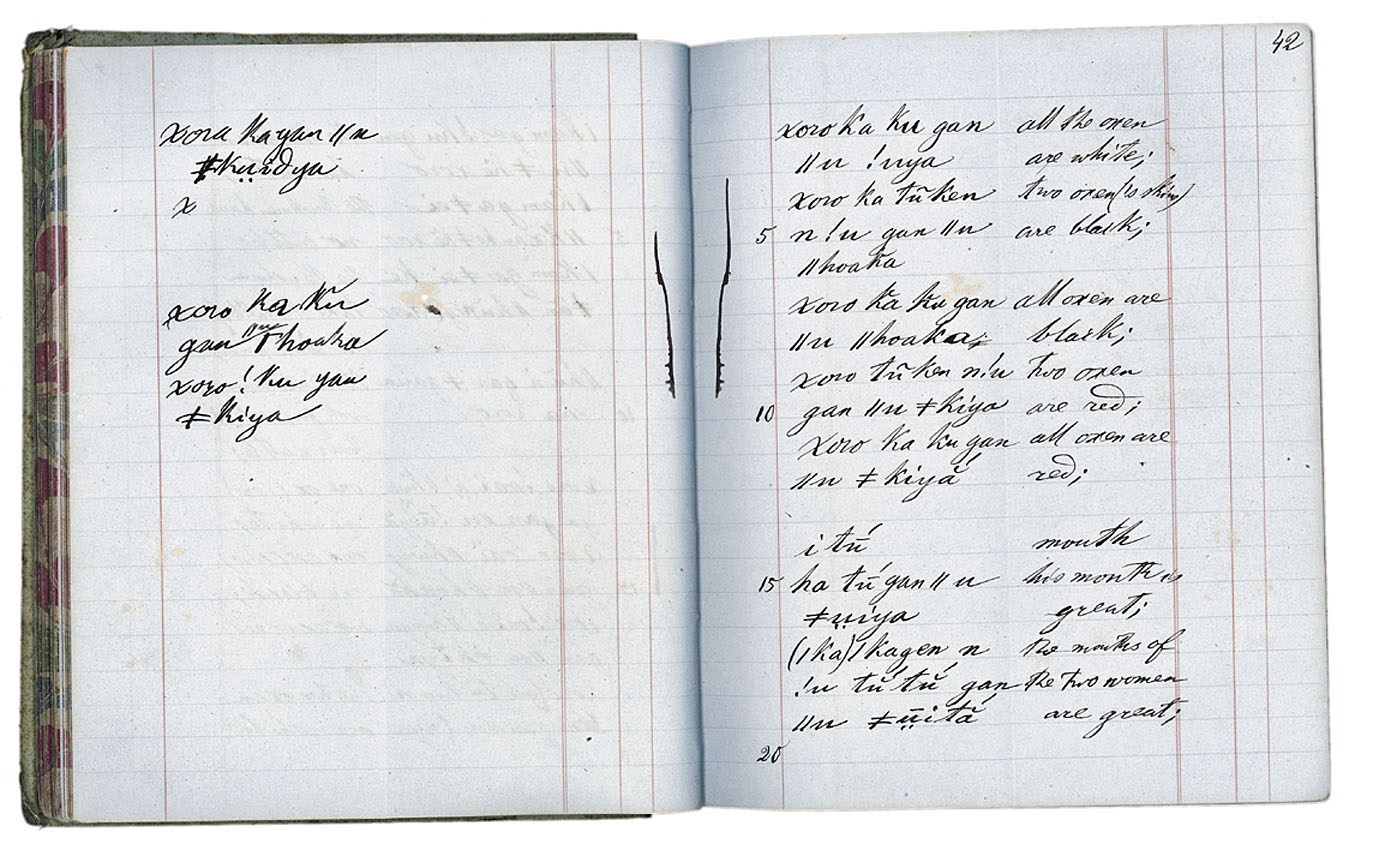 xora ka gan ǁu
ǂkụ̈idya
x
xoro ka ku
gan ǁhoaka
xoro !ku gan
ǂkiya
42
xoro ka ku gan all the oxen
ǁu !uya are white;
xoro ka tū ken two oxen (is skin)
5 n!u gan ǁu are black;
ǁhoaka
xoro ka ku gan all oxen are
ǁu ǁhoaka; black;
xoro tū ken n!u two oxen
10 gan ǁu ǂkiya are red;
xoro ka ku gan all oxen are
ǁu ǂkiyá red;
i tú mouth
15 ha tú gan ǁu his mouth is
ǂụ̈iya great;
(ǀka) ǀkagen n the mouths of
!u tú tú gan the two women
ǁu ǂụ̈itá are great;
20